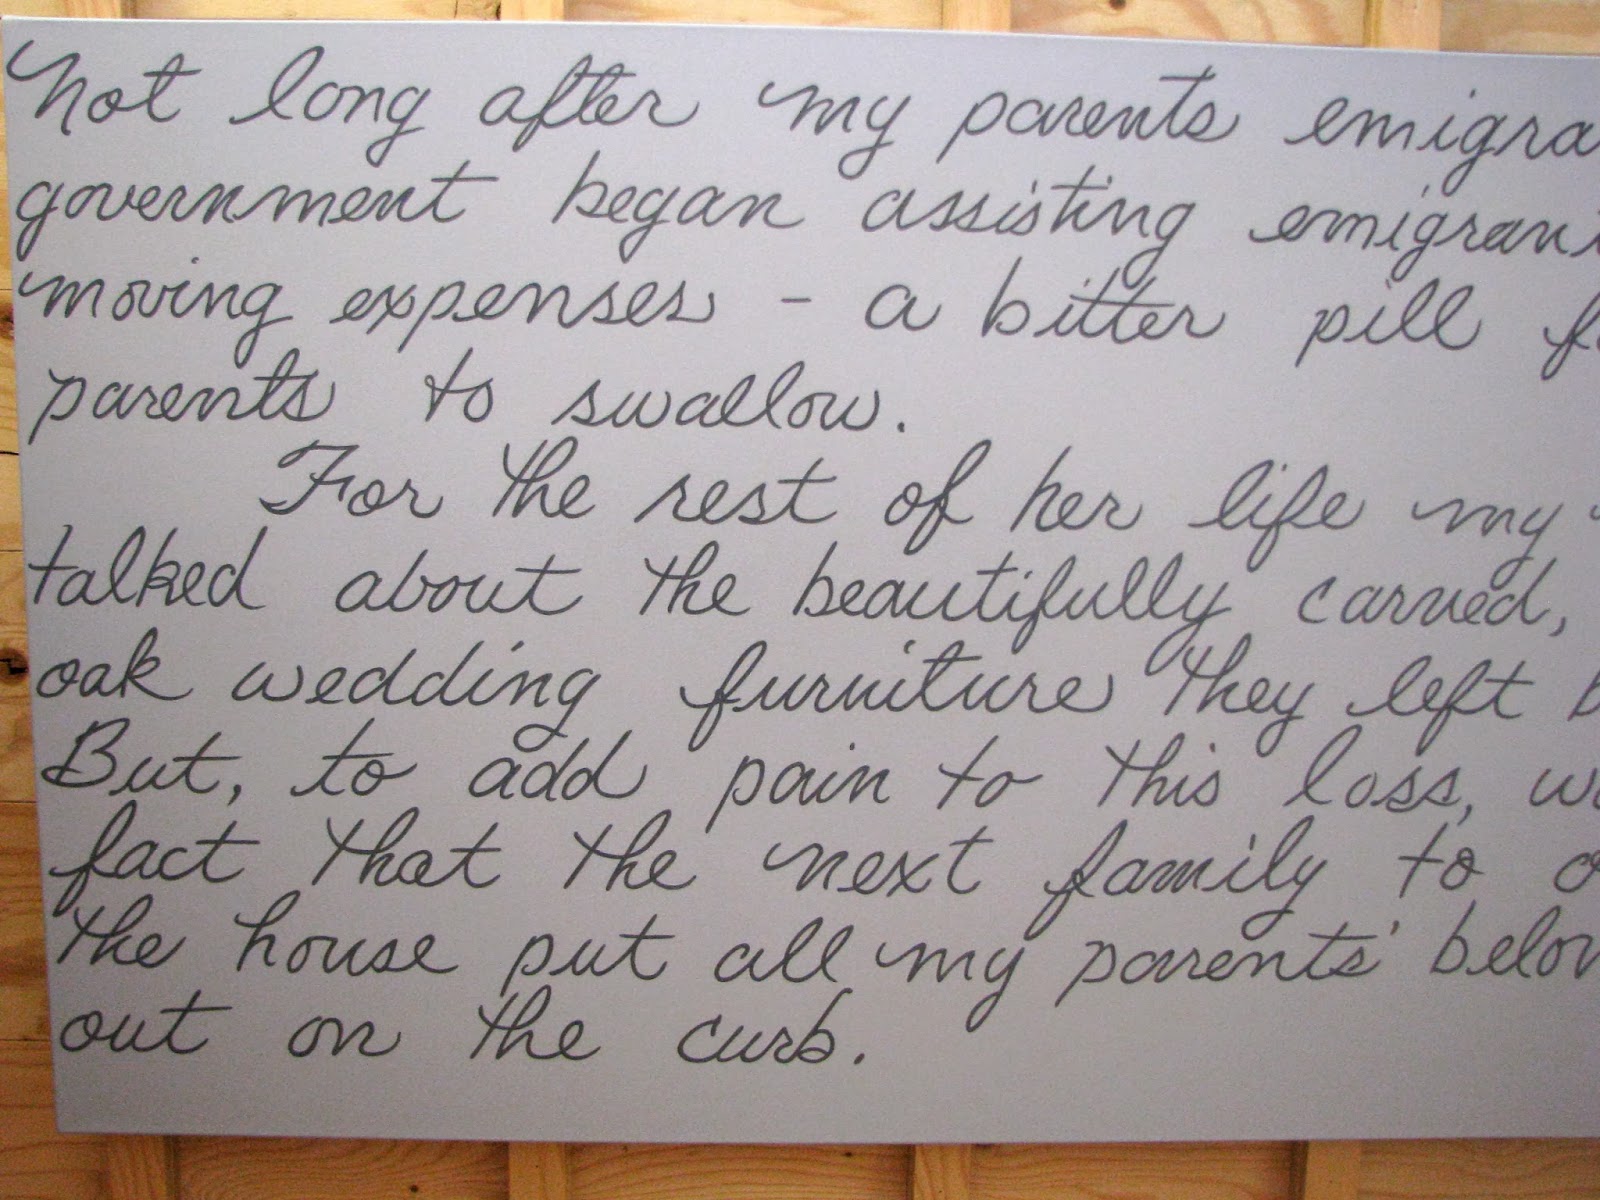 Not long after my parents emigra
government began assisting emigran
moving expenses - a bitter pill f
parents to swallow.
For the rest of her life my
talked about the beautifully carved,
oak wedding furniture they left b
But, to add pain to this loss, w
fact that the next family to o
the house put all my parents' belon
out on the curb.